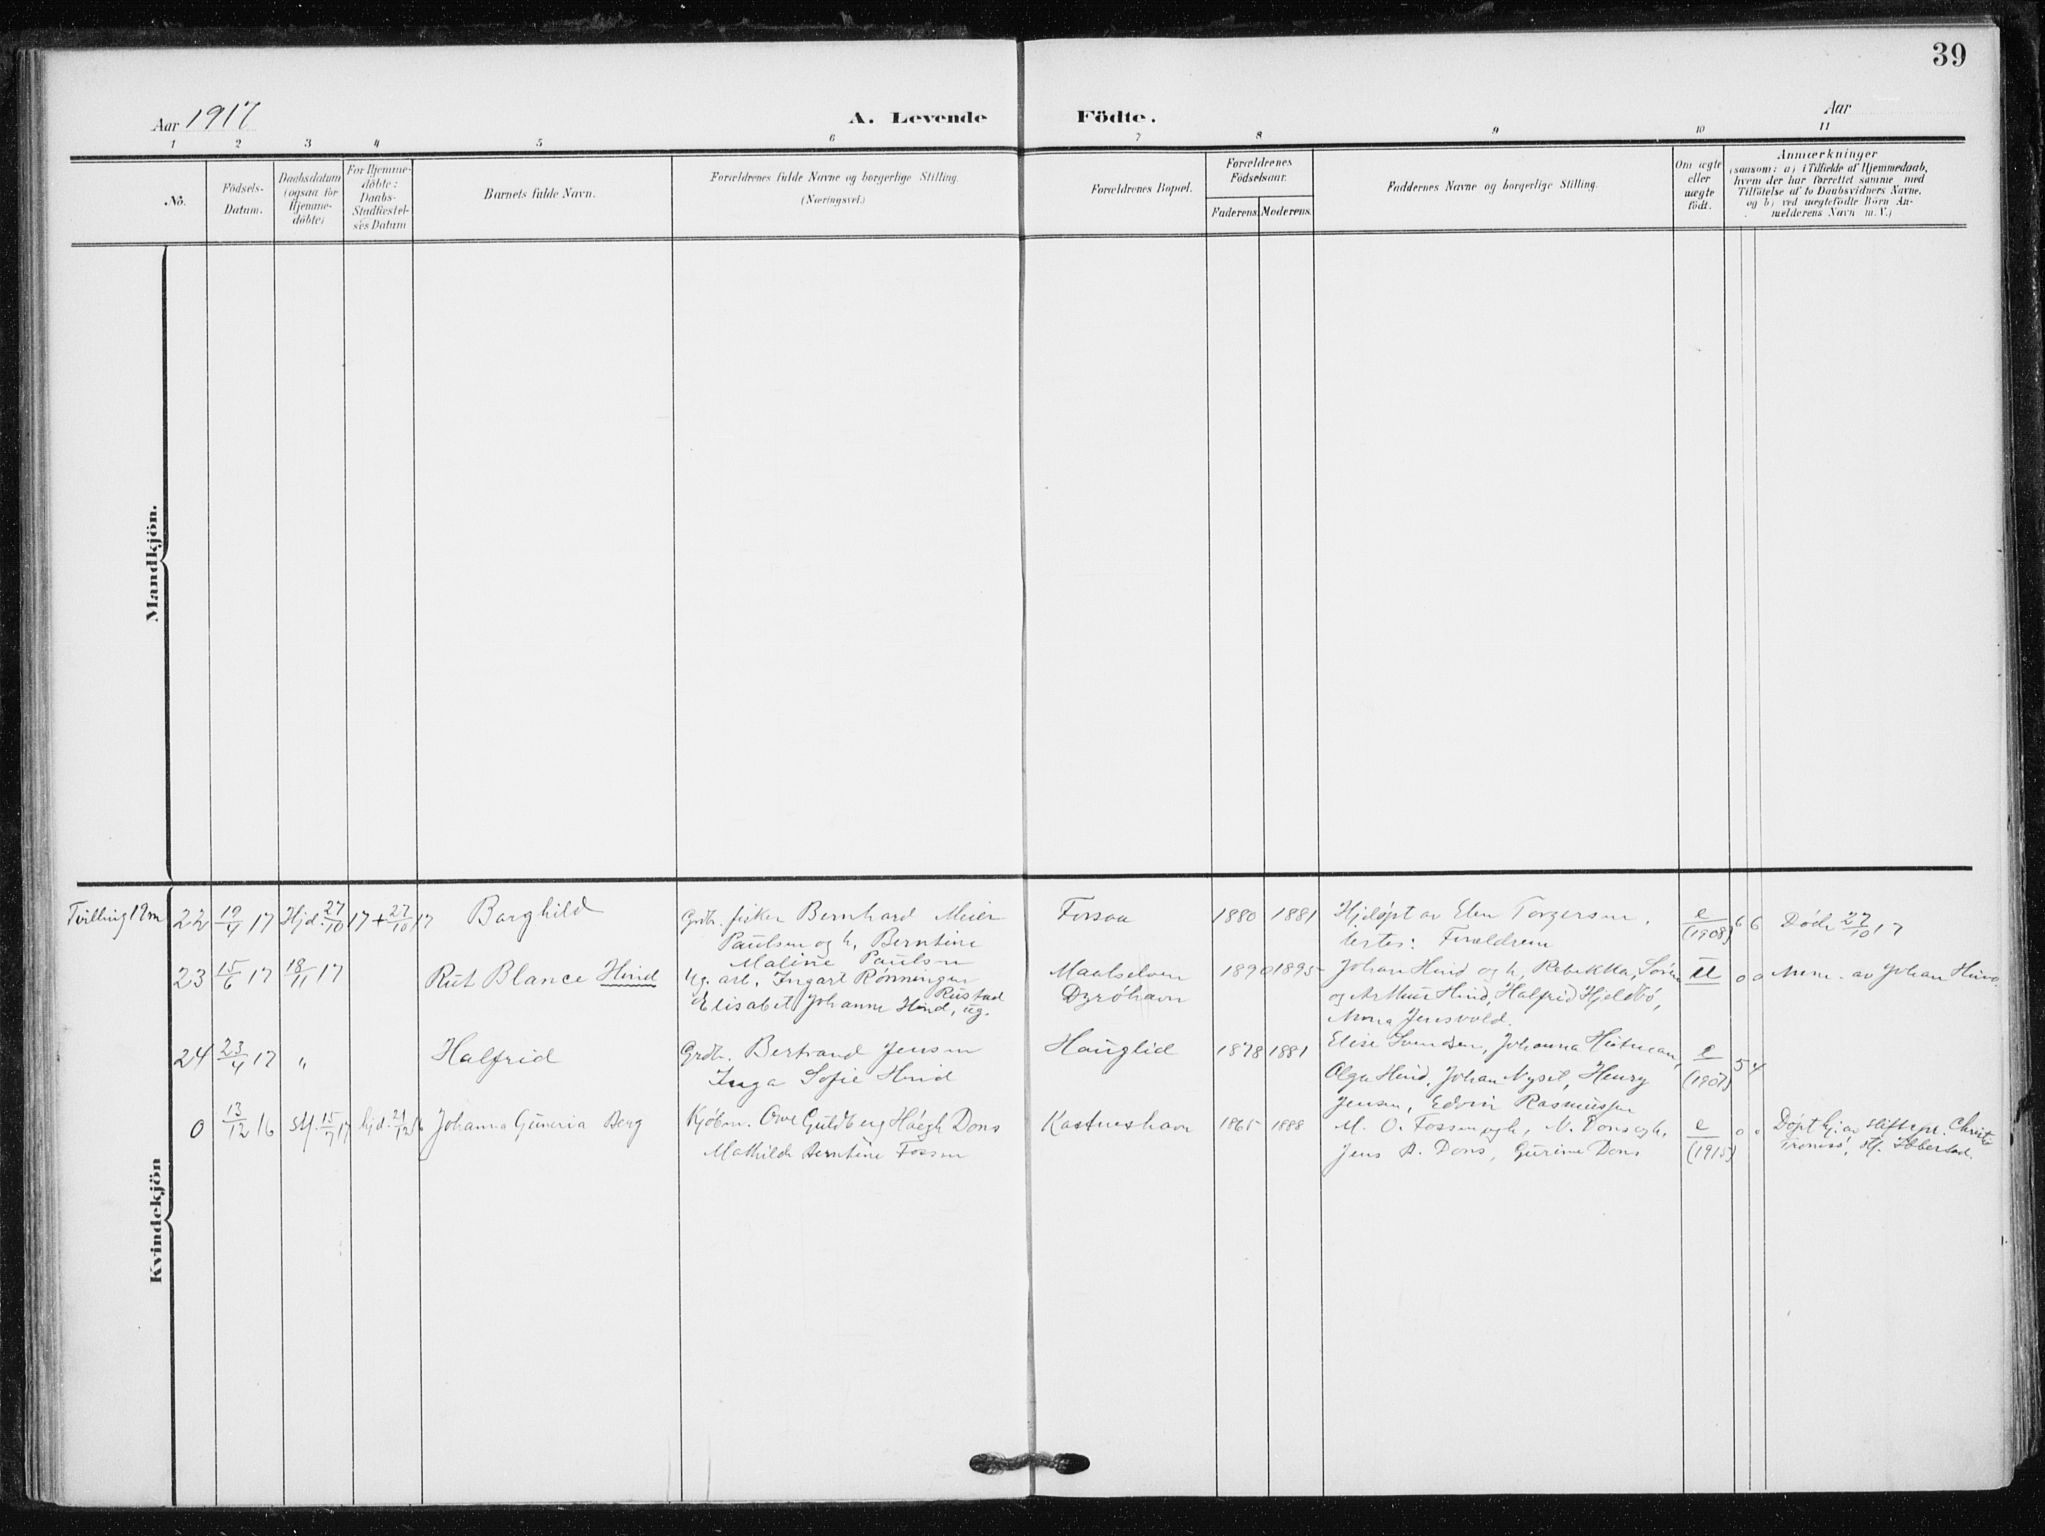 39
Aar 1917
A. Levende Födte.
Aar
1 2 3 4 5 6 7 8 9 10 11
No.
Födsels-
Datum.
Daabsdatum
(ogsaa for
Hjemme-
döbte)
For Hjemme-
döbte:
Daabs-
Stadfæstel-
ses Datum
Barnets fulde Navn.
Forældrenes fulde Navne og borgerlige Stilling.
(Næringsvei.)
Forældrenes Bopæl.
Forældrenes
Födselsaar.
Faderens. Moderens.
Faddernes Navne og borgerlige Stilling.
Om ægte
eller
uægte
födt.
Anmærkninger
(saasom: a) i Tilfælde af Hjemmedaab,
hvem der har forrettet samme med
Tilföielse af to Daabsvidners Navne,
og b) ved uægtefödte Börn An-
melderens Navn m. V.)
Mandkjön.
Kvindekjön
Tvilling 19m 22 19/4 17 Hjd. 27/10 17 + 27/10 17 Borghild
Grdb. fisker Bernhard Meier
Paulsen og h. Berntine
Maline Paulsen
Forsaa 1880 1881
Hjdöpt av Elen Torgersen.
tertes: Forældrene
e/(1908) 6 6 Döde 27/10 17
23 15/6 17 18/11 17 Rut Blance Hind
Ug. arb. Ingart Rönningen
Rustad
Elisabet Johanne Hind, ug.
Maalselven
Dyröhavn
1890 1895
Johan Hind og h. Rebekka, Sören
og Arthur Hind, Halfrid Hjeldbö,
Mona Jensvold.
u 0 0 Anm. av Johan Hind.
24 23/4 17 " Halfrid
Grdb. Bertrand Jensen
Inga Sofie Hind
Hauglid 1878 1881
Elise Svendsen, Johanna
Olga Hind, Johan Nyset, Henry
Jensen, Edvin Rasmussen
e/(1907) 5 4
0 13/12 16 stf. 15/7 17 hjd. 21/12 16 Johanna Guneria Berg
Kjöbm. Ove Guldberg Höegh Dons
Mathilde Berntine Fossen
Kastneshavn 1865 1888
M. O. Fossen og h., N. Dons og h.
Jens A. Dons, Gurine Dons
e/(1915) 0 0
Döpt hj. av stiftspr. Christ.
Tromsö, stf. Ibbestad.